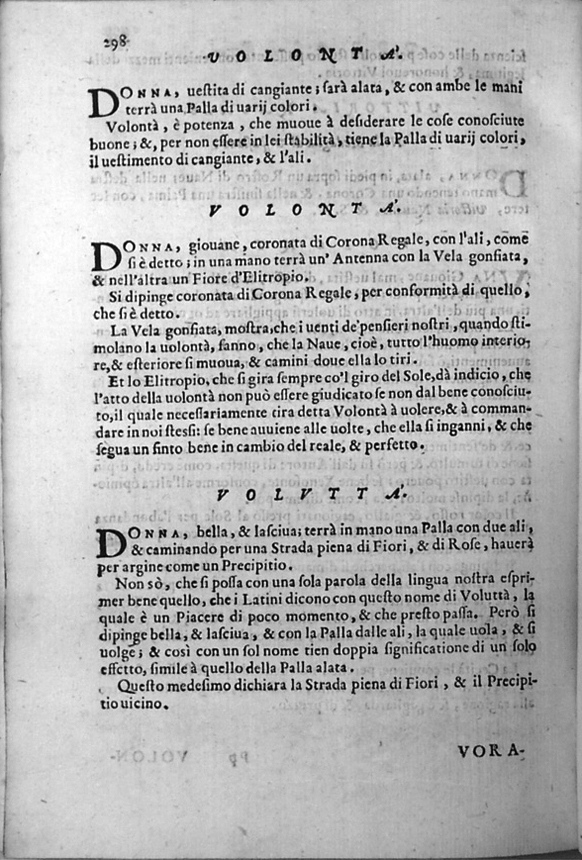 298
VOLONTÀ.
DONNA, uestita di cangiante; sarà alata, & con ambe le mani
terrà una Palla di uarij colori.
Volontà, è potenza, che muoue à desiderare le cose conosciute
buone; &, per non essere in lei stabilità, tiene la Palla di uarij colori,
il uestimento di cangiante, & l'ali.
VOLONTÀ.
DONNA, giouane, coronata di Corona Regale, con l'ali, come
si è detto; in una mano terrà un' Antenna con la Vela gonfiata,
& nell'altra un Fiore d'Elitropio.
Si dipinge coronata di Corona Regale, per conformità di quello,
che si è detto.
La Vela gonfiata, mostra, che i uenti de' pensieri nostri, quando sti-
molano la uolontà, fanno, che la Naue, cioè, tutto l'huomo interio-
re, & esteriore si muoua, & camini doue ella lo tiri.
Et lo Elitropio, che si gira sempre co'l giro del Sole, dà indicio, che
l'atto della uolontà non può essere giudicato se non dal bene conosciu-
to, il quale necessariamente tira detta Volontà à uolere, & à comman-
dare in noi stessi: se bene auuiene alle uolte, che ella si inganni, & che
segua un finto bene in cambio del reale, & perfetto.
VOLVTTÀ.
DONNA, bella, & lasciua; terrà in mano una Palla con due ali,
& caminando per una Strada piena di Fiori, & di Rose, hauerà
per argine come un Precipitio.
Non sò, che si possa con una sola parola della lingua nostra espri-
mer bene quello, che i Latini dicono con questo nome di Voluttà, la
quale è un Piacere di poco momento, & che presto passa. Però si
dipinge bella, & lasciua, & con la Palla dalle ali, la quale uola, & si
uolge; & così con un sol nome tien doppia significatione di un solo
effetto, simile à quello della Palla alata.
Questo medesimo dichiara la Strada piena di Fiori, & il Precipi-
tio uicino.
VORA-